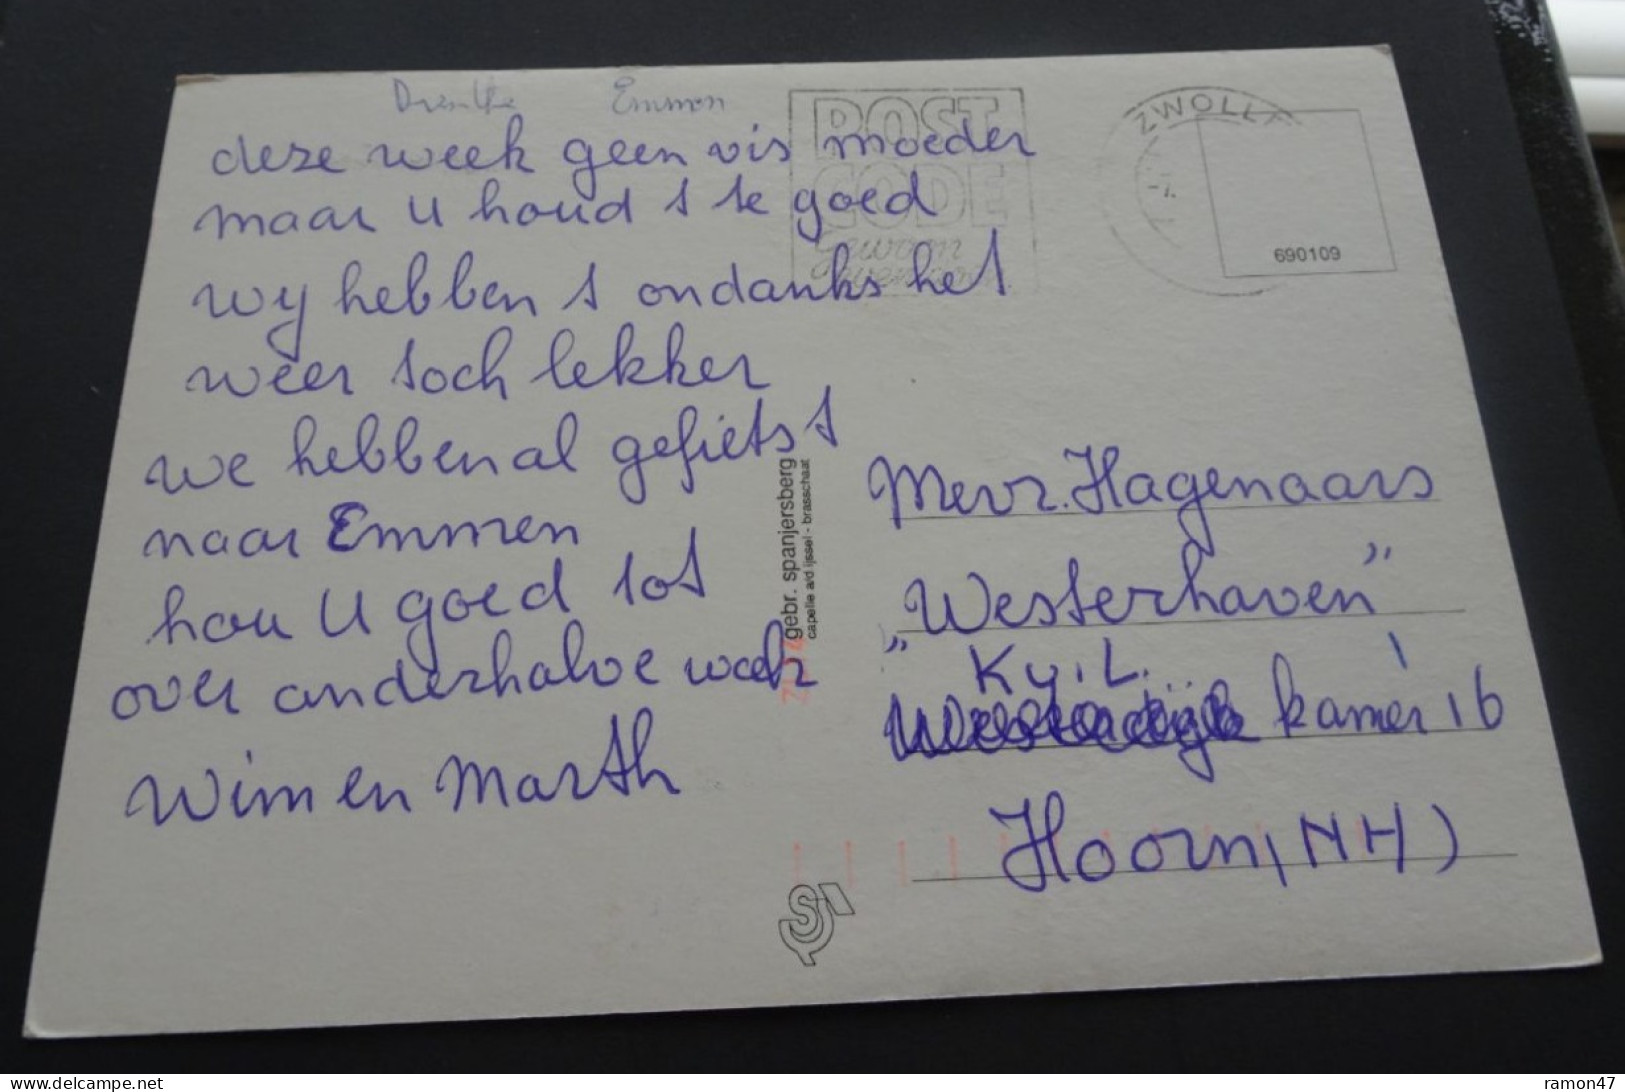 Drenthe Emmen
deze week geen vis moeder
maar U houd t te goed
wy hebben t ondanks het
weer toch lekker
we hebben al gefietst
naar Emmen
hou U goed tot
over anderhalve week
Wim en Marth
POST
CODE
gewoon
ZWOLLE
690109
gebr. spanjersberg
capelle a/d ijssel - brasschaat
Mevr. Hagenaars
„Westerhaven”
kamer 16
Hoorn, (NH)
delcampe.net
ramon47